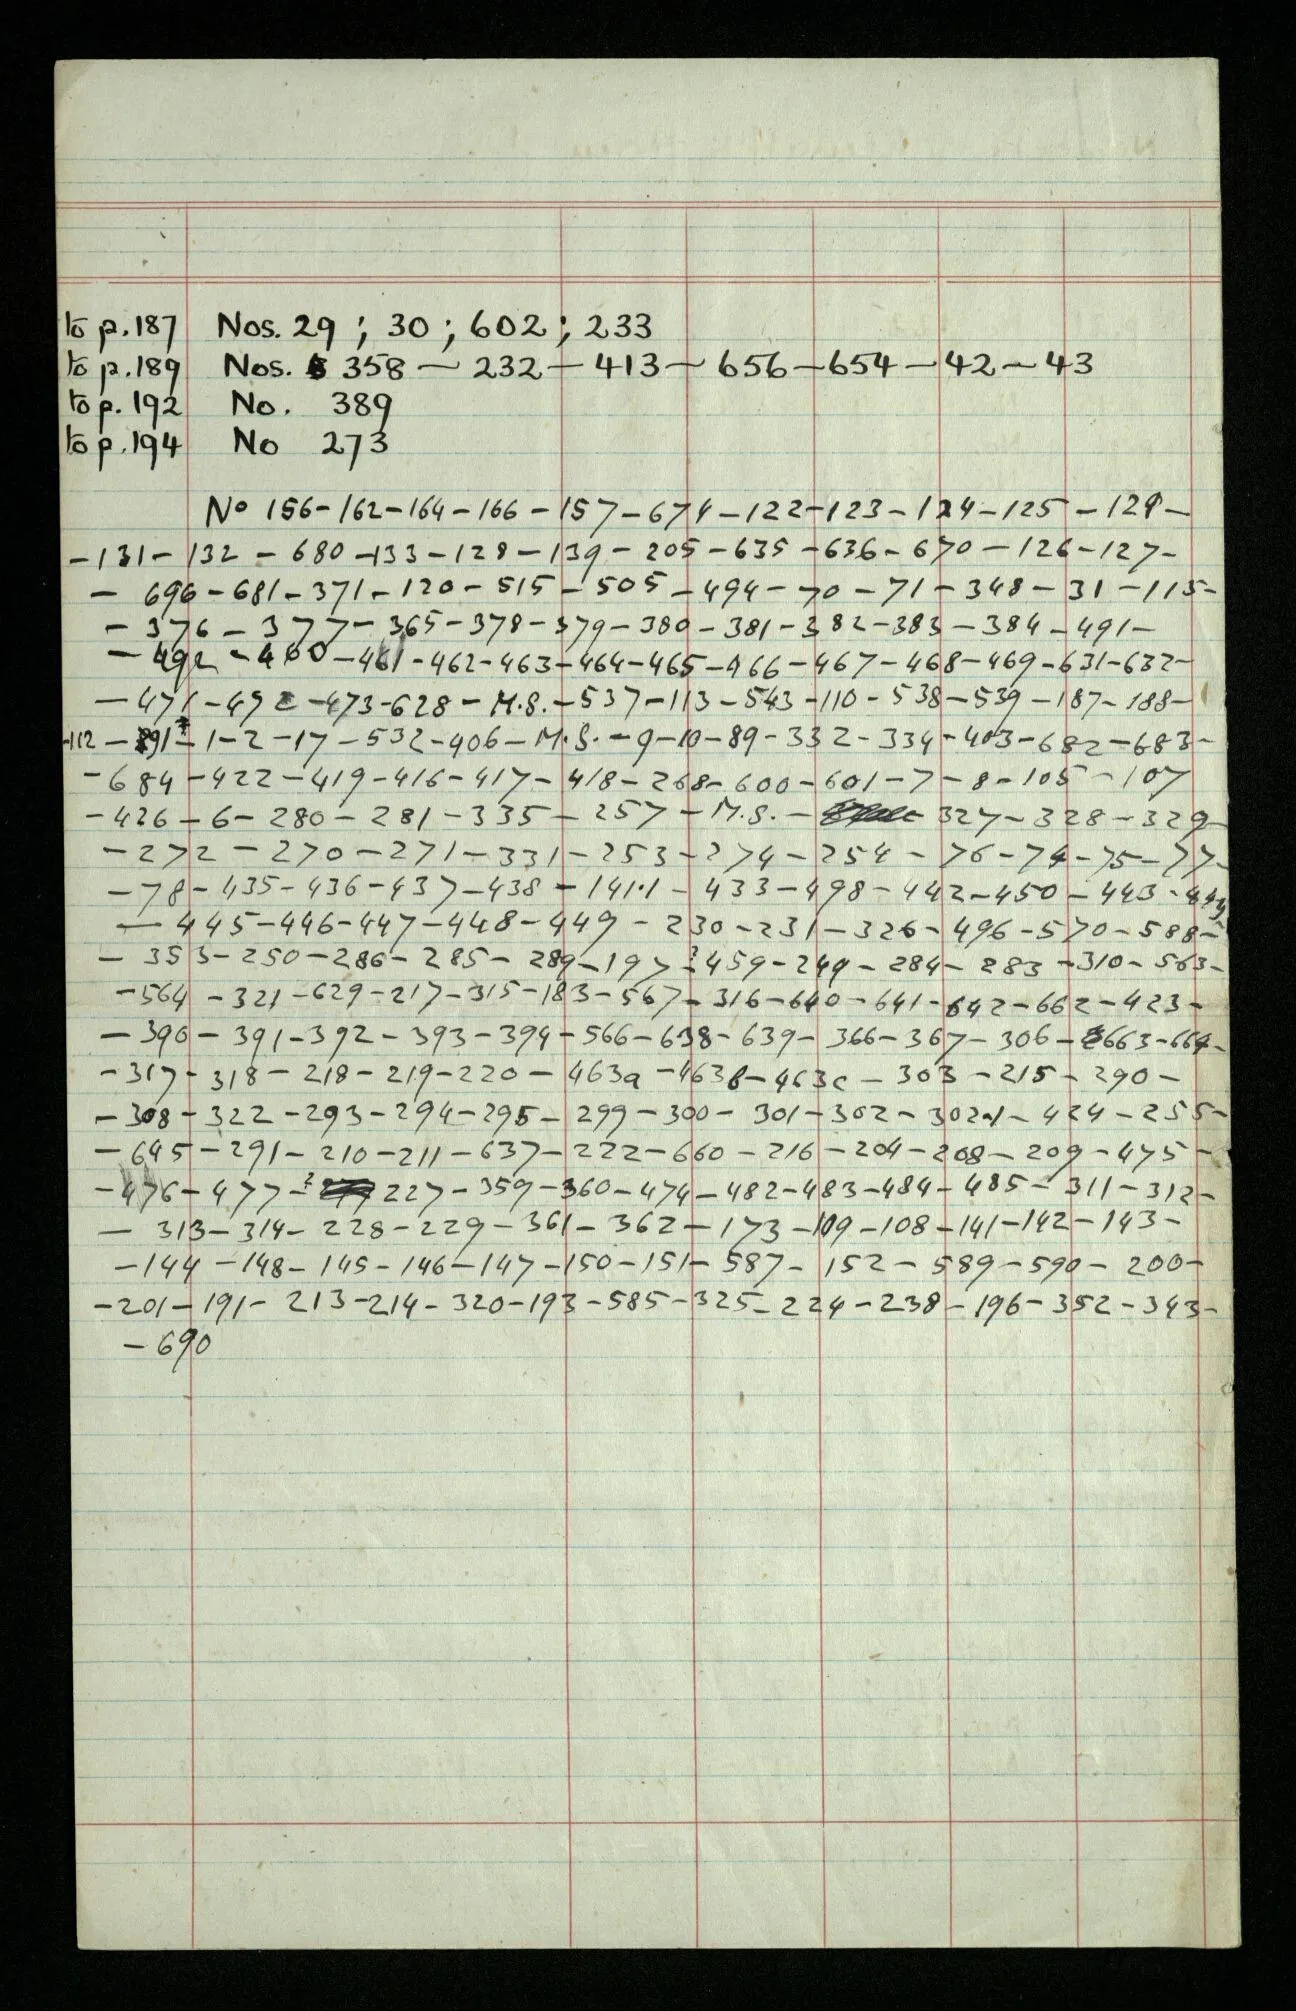 to p.187 Nos. 29 ; 30 ; 602 ; 233
to p.189 Nos. 358 – 232 – 413 – 656 – 654 – 42 – 43
to p.192 No. 389
to p.194 No 273
No 156 – 162 – 164 – 166 – 157 – 674 – 122 – 123 – 124 – 125 – 129 –
– 131 – 132 – 680 – 133 – 128 – 139 – 205 – 635 – 636 – 670 – 126 – 127 –
– 696 – 681 – 371 – 120 – 515 – 505 – 494 – 70 – 71 – 348 – 31 – 115 –
– 376 – 377 – 365 – 378 – 379 – 380 – 381 – 382 – 383 – 384 – 491 –
– 492 – 460 – 461 – 462 – 463 – 464 – 465 – 466 – 467 – 468 – 469 – 631 – 632 –
– 471 – 472 – 473 – 628 – M.S. – 537 – 113 – 543 – 110 – 538 – 539 – 187 – 188 –
– 112 – – 1 – 2 – 17 – 532 – 406 – M.S. – 9 – 10 – 89 – 332 – 334 – 403 – 682 – 683 –
– 684 – 422 – 419 – 416 – 417 – 418 – 268 – 600 – 601 – 7 – 8 – 105 – 107
– 426 – 6 – 280 – 281 – 335 – 257 – M.S. – 327 – 328 – 329 –
– 272 – 270 – 271 – 331 – 253 – 274 – 254 – 76 – 74 – 75 – 77 –
– 78 – 435 – 436 – 437 – 438 – 141.1 – 433 – 498 – 442 – 450 – 443 – 444
– 445 – 446 – 447 – 448 – 449 – 230 – 231 – 326 – 496 – 570 – 588 –
– 353 – 250 – 286 – 285 – 289 – 197 – ? 459 – 249 – 284 – 283 – 310 – 563 –
– 564 – 321 – 629 – 217 – 315 – 183 – 567 – 316 – 640 – 641 – 642 – 662 – 423 –
– 390 – 391 – 392 – 393 – 394 – 566 – 638 – 639 – 366 – 367 – 306 – 663 – 664 –
– 317 – 318 – 218 – 219 – 220 – 463a – 463b – 463c – 303 – 215 – 290 –
– 308 – 322 – 293 – 294 – 295 – 299 – 300 – 301 – 302 – 302.1 – 424 – 255 –
– 645 – 291 – 210 – 211 – 637 – 222 – 660 – 216 – 204 – 208 – 209 – 475 –
– 476 – 477 – ? 227 – 359 – 360 – 474 – 482 – 483 – 484 – 485 – 311 – 312 –
– 313 – 314 – 228 – 229 – 361 – 362 – 173 – 109 – 108 – 141 – 142 – 143 –
– 144 – 148 – 145 – 146 – 147 – 150 – 151 – 587 – 152 – 589 – 590 – 200 –
– 201 – 191 – 213 – 214 – 320 – 193 – 585 – 325 – 224 – 238 – 196 – 352 – 343 –
– 690